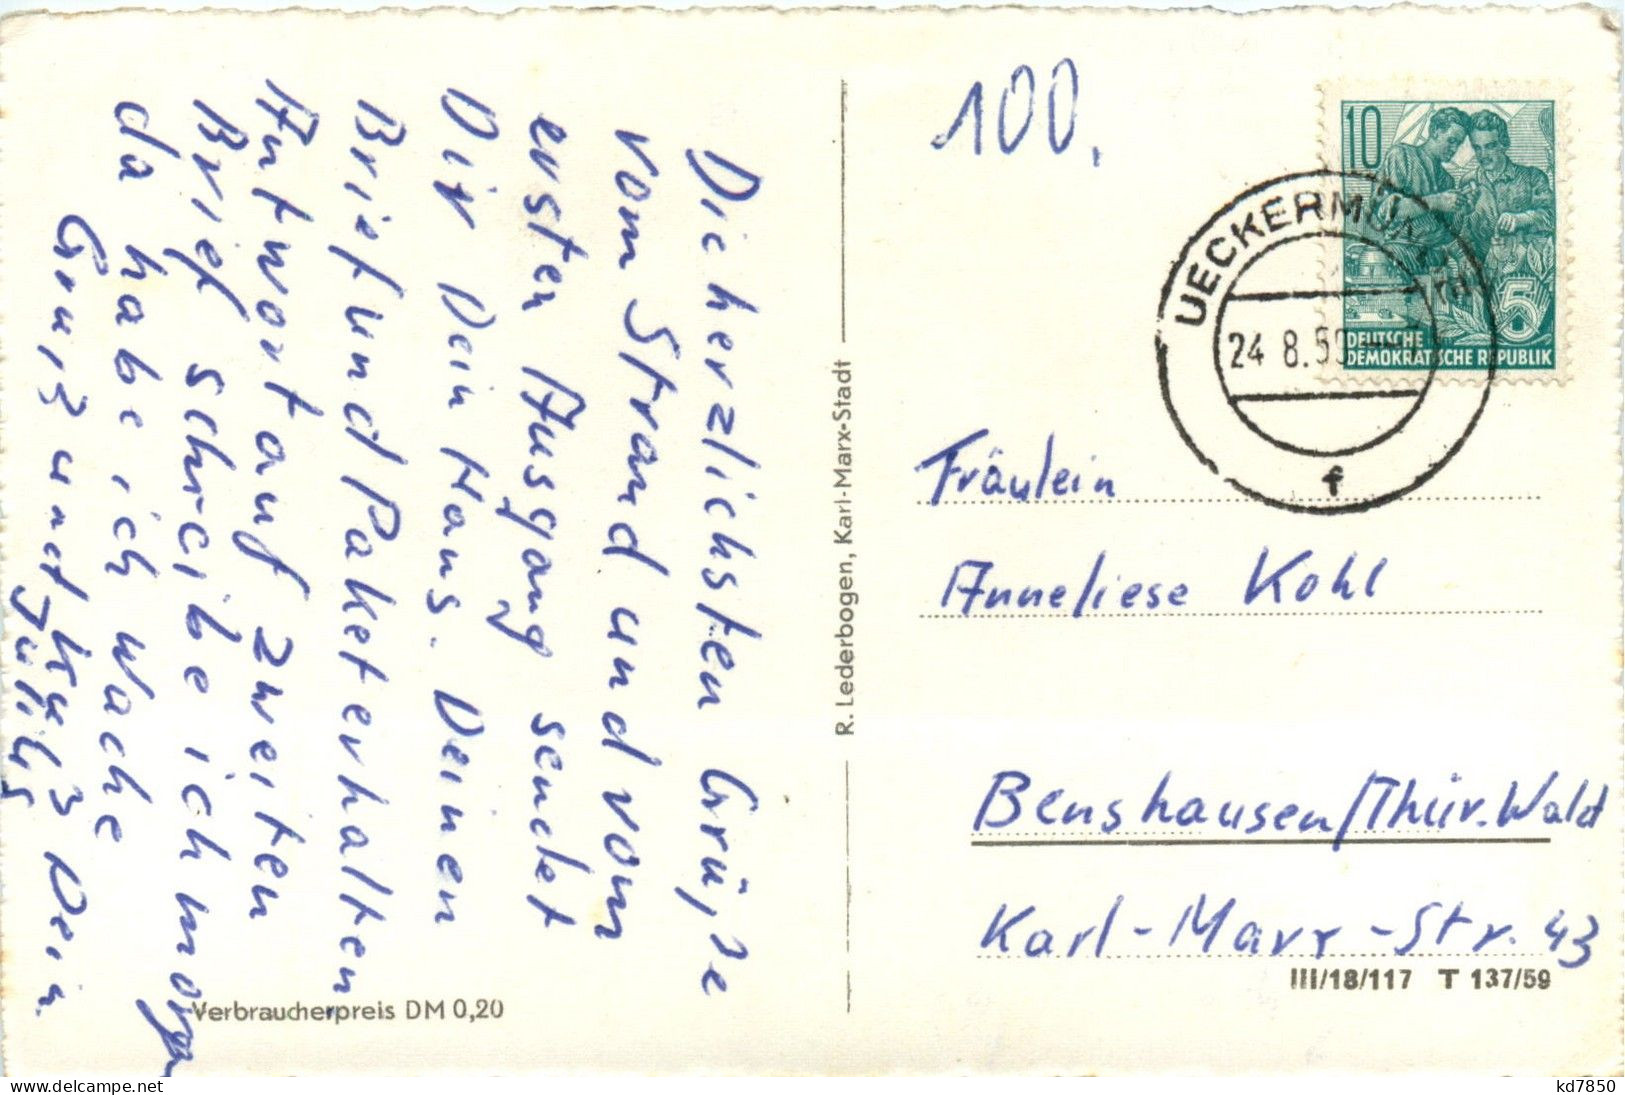 Die herzlichsten Grüße
vom Strand und vom
ersten Ausgang sendet
Dir Dein Hans. Deinen
Brief und Paket erhalten
Antwort auf zweiten
Brief schreibe ich morgen
da habe ich Wache
Gruß und Kuß Dein
Verbraucherpreis DM 0,20
R. Lederbogen, Karl-Marx-Stadt
100,
10
DEUTSCHE
DEMOKRATISCHE REPUBLIK
5
UECKERMÜN
24 8.59
f
Fräulein
Anneliese Kohl
Benshausen/Thür. Wald
Karl-Marx-Str. 43
III/18/117 T 137/59
delcampe.net
kd7850